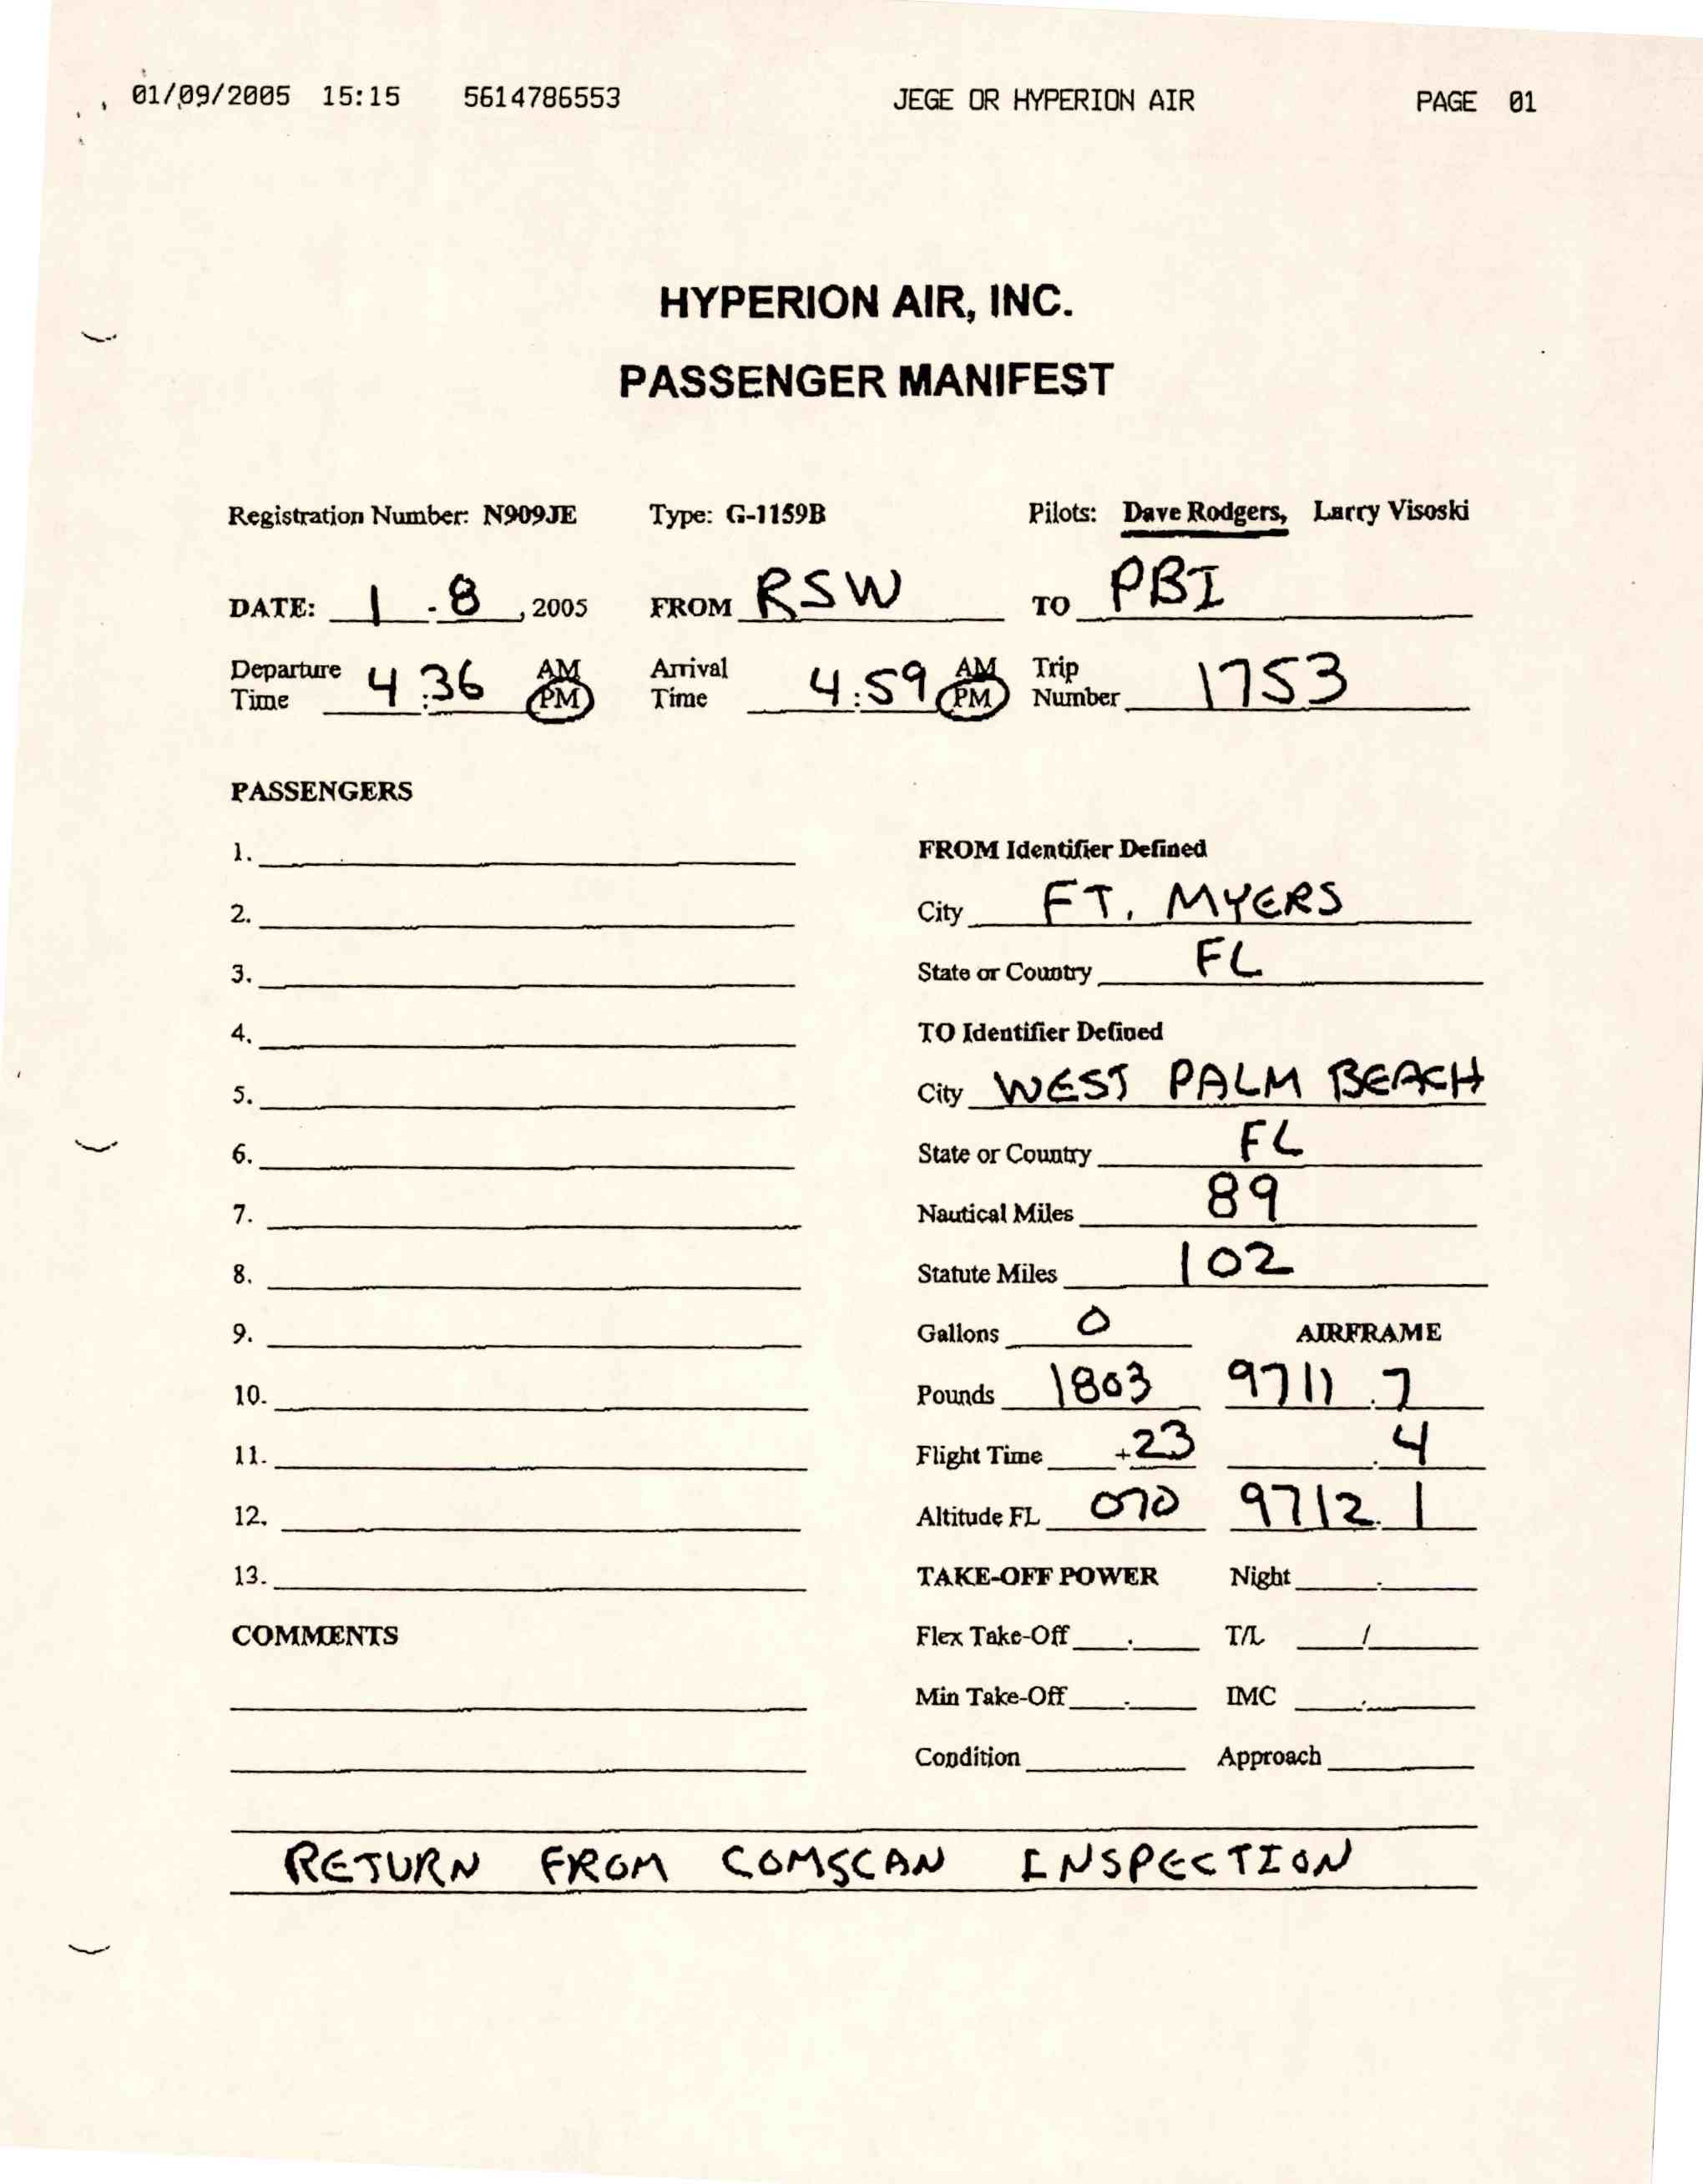 01/09/2005 15:15 5614786553 JEGE OR HYPERION AIR PAGE 01
HYPERION AIR, INC.
PASSENGER MANIFEST
Registration Number: N909JE Type: G-1159B Pilots: Dave Rodgers, Larry Visoski
DATE: 1 . 8 , 2005 FROM RSW TO PBI
Departure Time 4:36 AM PM Arrival Time 4:59 AM PM Trip Number 1753
PASSENGERS
1. FROM Identifier Defined
2. City FT. MYERS
3. State or Country FL
4. TO Identifier Defined
5. City WEST PALM BEACH
6. State or Country FL
7. Nautical Miles 89
8. Statute Miles 102
9. Gallons 0 AIRFRAME
10. Pounds 1803 9711.7
11. Flight Time +23 .4
12. Altitude FL 070 9712.1
13. TAKE-OFF POWER Night .
COMMENTS Flex Take-Off . T/L /
Min Take-Off . IMC .
Condition Approach
RETURN FROM COMSCAN INSPECTION